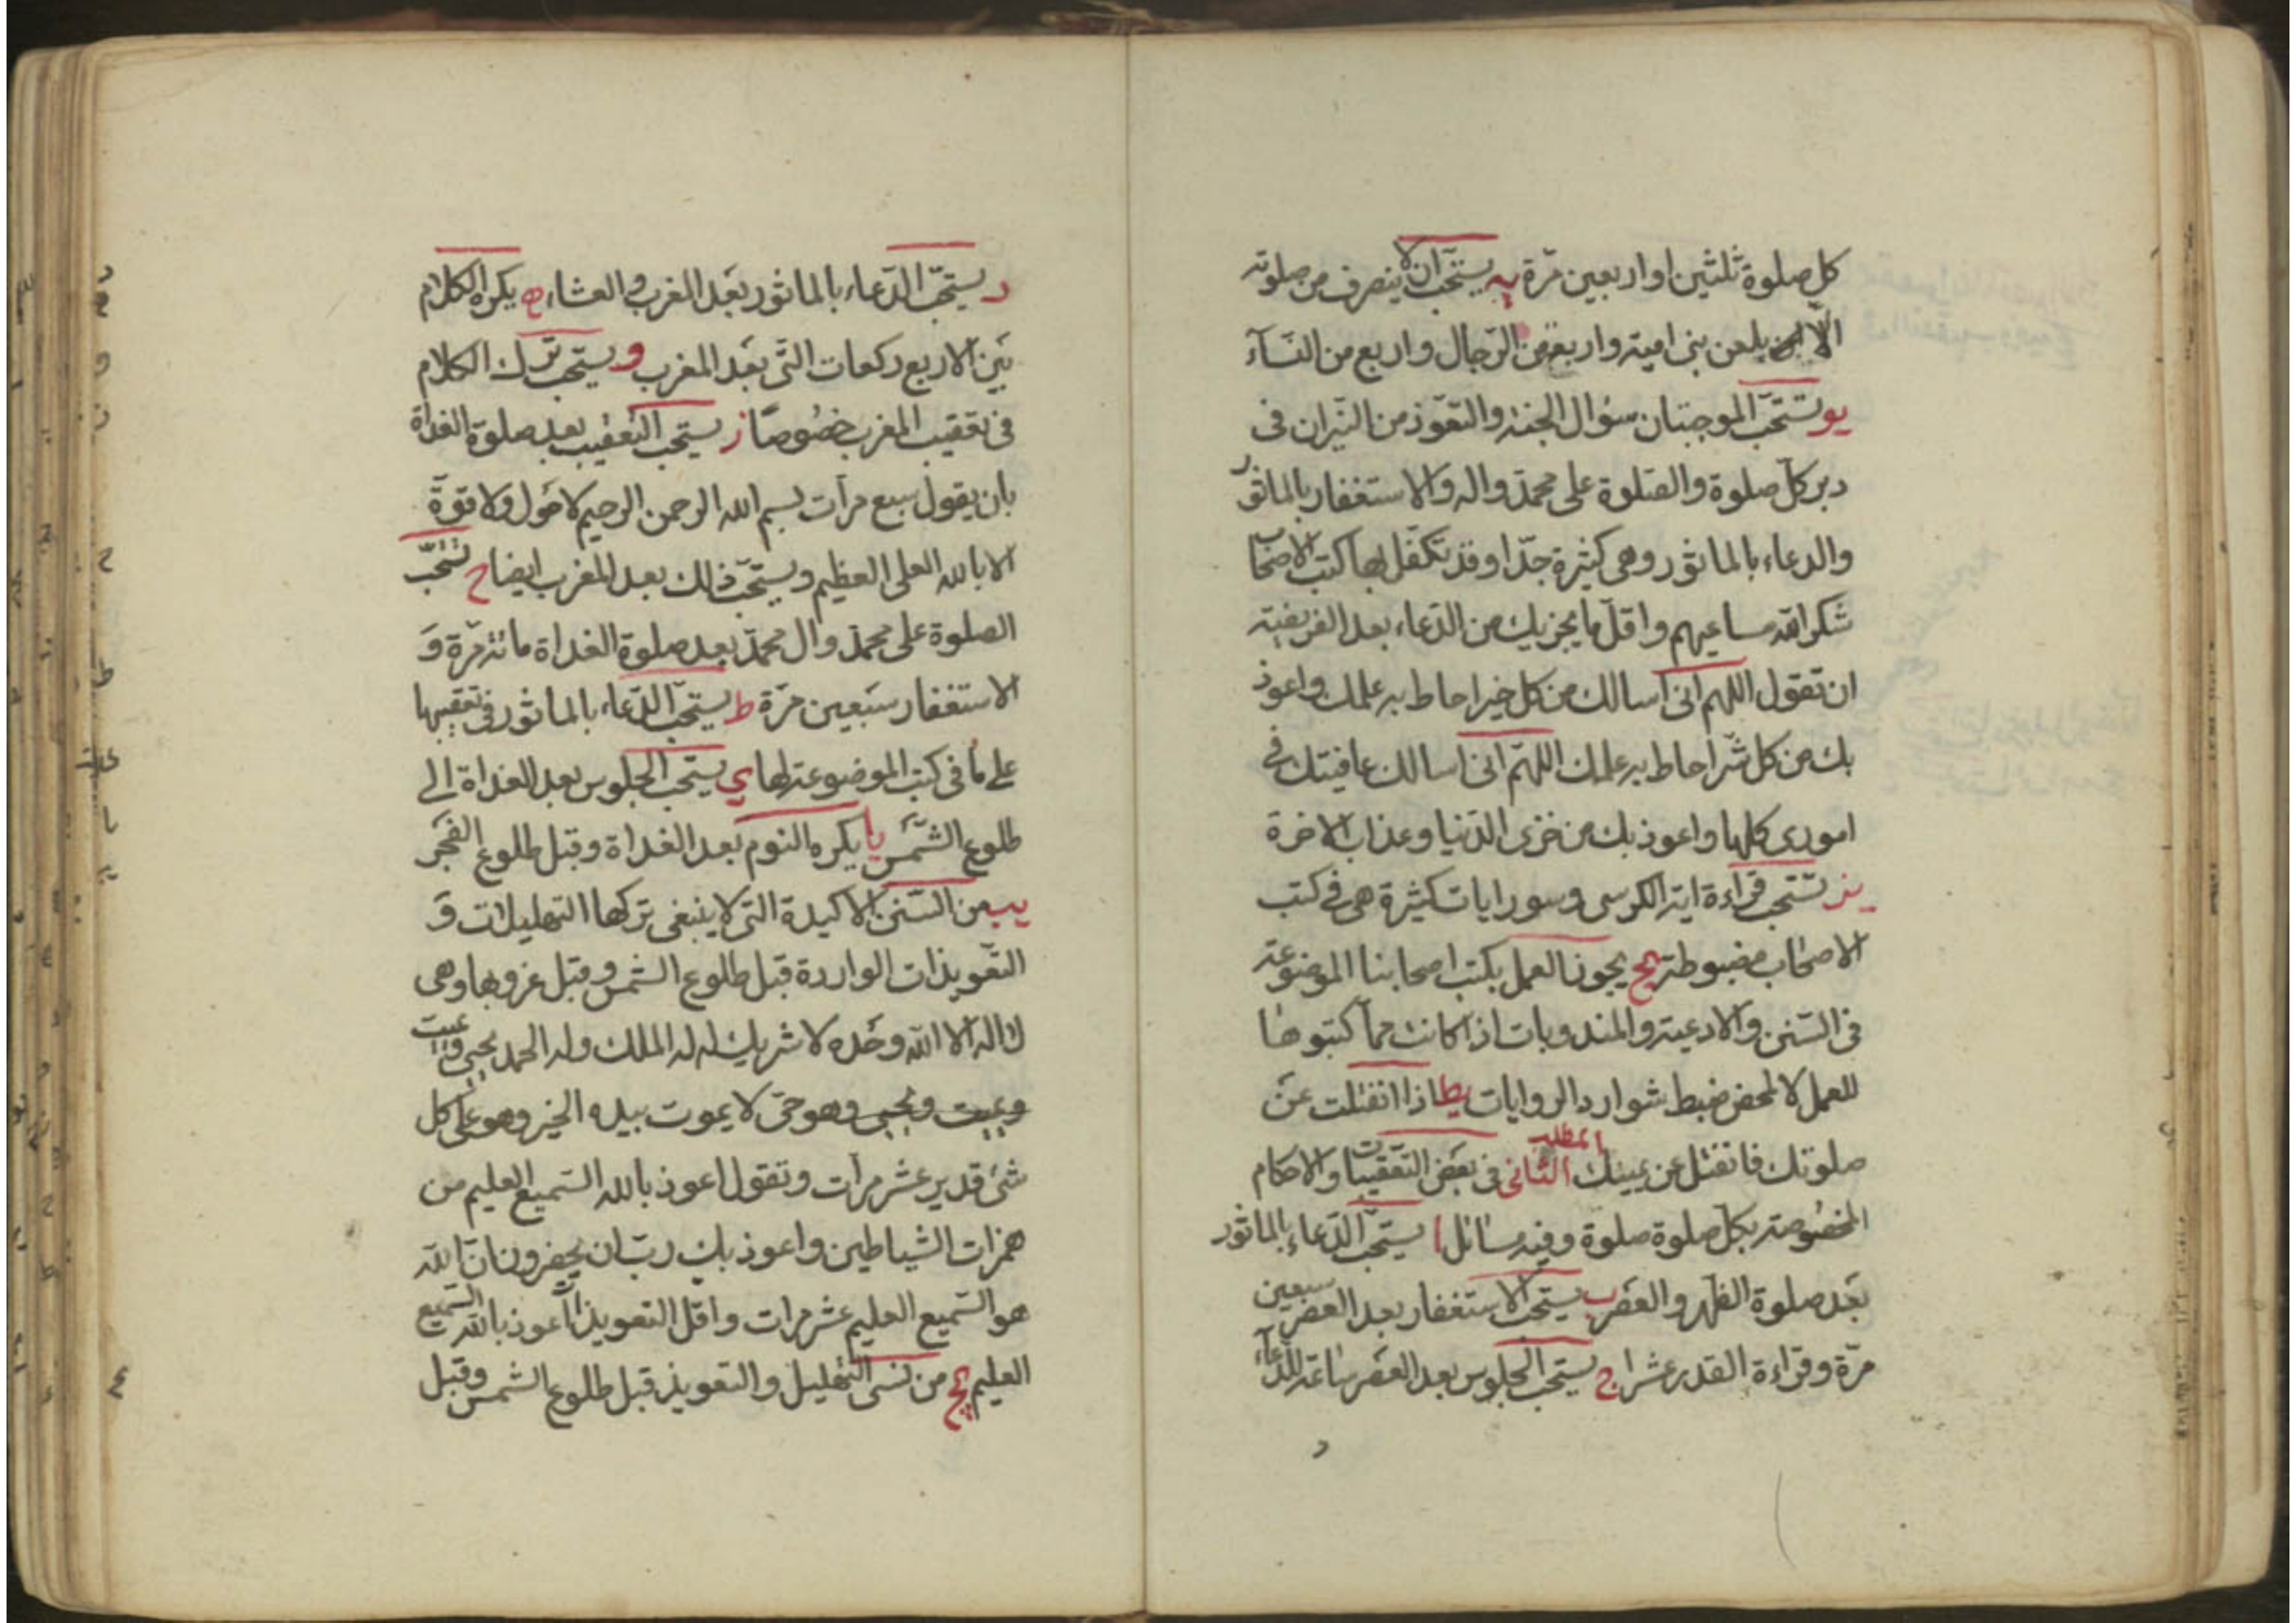 كل صلوة ثلثين او اربعين مرّة يه يستحبّ ان لا ينصرف من صلوته
الّا بلعن بنى امية واربعة من الرّجال واربع من النسآء
يو تستحبّ الموجبتان سؤال الجنة والتعوّذ من النّيران فى
دبر كلّ صلوة والصّلوة على محمّد واله والاستغفار بالماثور
والدعاء بالماثور وهى كثيرة جدّا وقد تكفّل بها كتب الاصحاب
شكر الله مساعيهم واقلّ ما يجزيك من الدّعاء بعد الفريضة
ان تقول اللهم انى اسالك من كل خير احاط به علمك واعوذ
بك من كل شّر احاط به علمك اللهمّ انى اسالك عافيتك فى
امورى كلها واعوذ بك من خزى الدّنيا وعذاب الاخرة
يز تستحب قراءة اية الكرسى وسور ايات كثيرة هى فى كتب
الاصحاب مضبوطة يح يجوز العمل بكتب اصحابنا الموضوعة
فى السّنن والادعية والمندوبات اذا كانت ممّا كتبوها
للعمل لا لمحض ضبط شوارد الروايات يط اذا انفتلت عن
صلوتك فانفتل عن يمينك المطلب الثانى فى بعض التعقيبات والاحكام
المخصوصة بكلّ صلوة صلوة وفيه مسائل ا يستحبّ الدّعاء بالماثور
بعد صلوة الظهر والعصر ب يستحبّ الاستغفار بعد العصر سبعين
مرّة وقراءة القدر عشرا ج يستحبّ الجلوس بعد العصر ساعة للدّعاء
د
د يستحبّ الدّعاء بالماثور بعد المغرب والعشاء ه يكره الكلام
بين الاربع ركعات التّى بعد المغرب و يستحبّ ترك الكلام
فى تعقيب المغرب خصوصًا ز يستحب التعقيب بعد صلوة الغداة
بان يقول سبع مرات بسم الله الرحمن الرحيم لا حول ولا قوّة
الا بالله العلى العظيم ويستحبّ ذلك بعد المغرب ايضا ح تستحبّ
الصلوة على محمّد وال محمّد بعد صلوة الغداة مائة مرّة و
الاستغفار سبعين مرّة ط يستحبّ الدّعاء بالماثور فى تعقيبها
على ما فى كتب الموضوعة لها ي يستحب الجلوس بعد الغداة الى
طلوع الشّمس يا يكره النوم بعد الغداة وقبل طلوع الفجر
يب من السّنن الاكيدة التى لا ينبغى تركها التهليلات و
التعويذات الواردة قبل طلوع الشمس وقبل غروبها وهى
لا اله الا الله وحده لا شريك له له الملك وله الحمد يحيى ويميت
ويميت ويحيى وهو حىّ لا يموت بيده الخير وهو على كل
شئ قدير عشر مرّات وتقول اعوذ بالله السّميع العليم من
همزات الشياطين واعوذ بك ربّ ان يحضرون انّ الله
هو السّميع العليم عشر مرات واقل التعويذ اعوذ بالله السّميع
العليم يج من نسى التهليل والتعويذ قبل طلوع الشمس وقبل